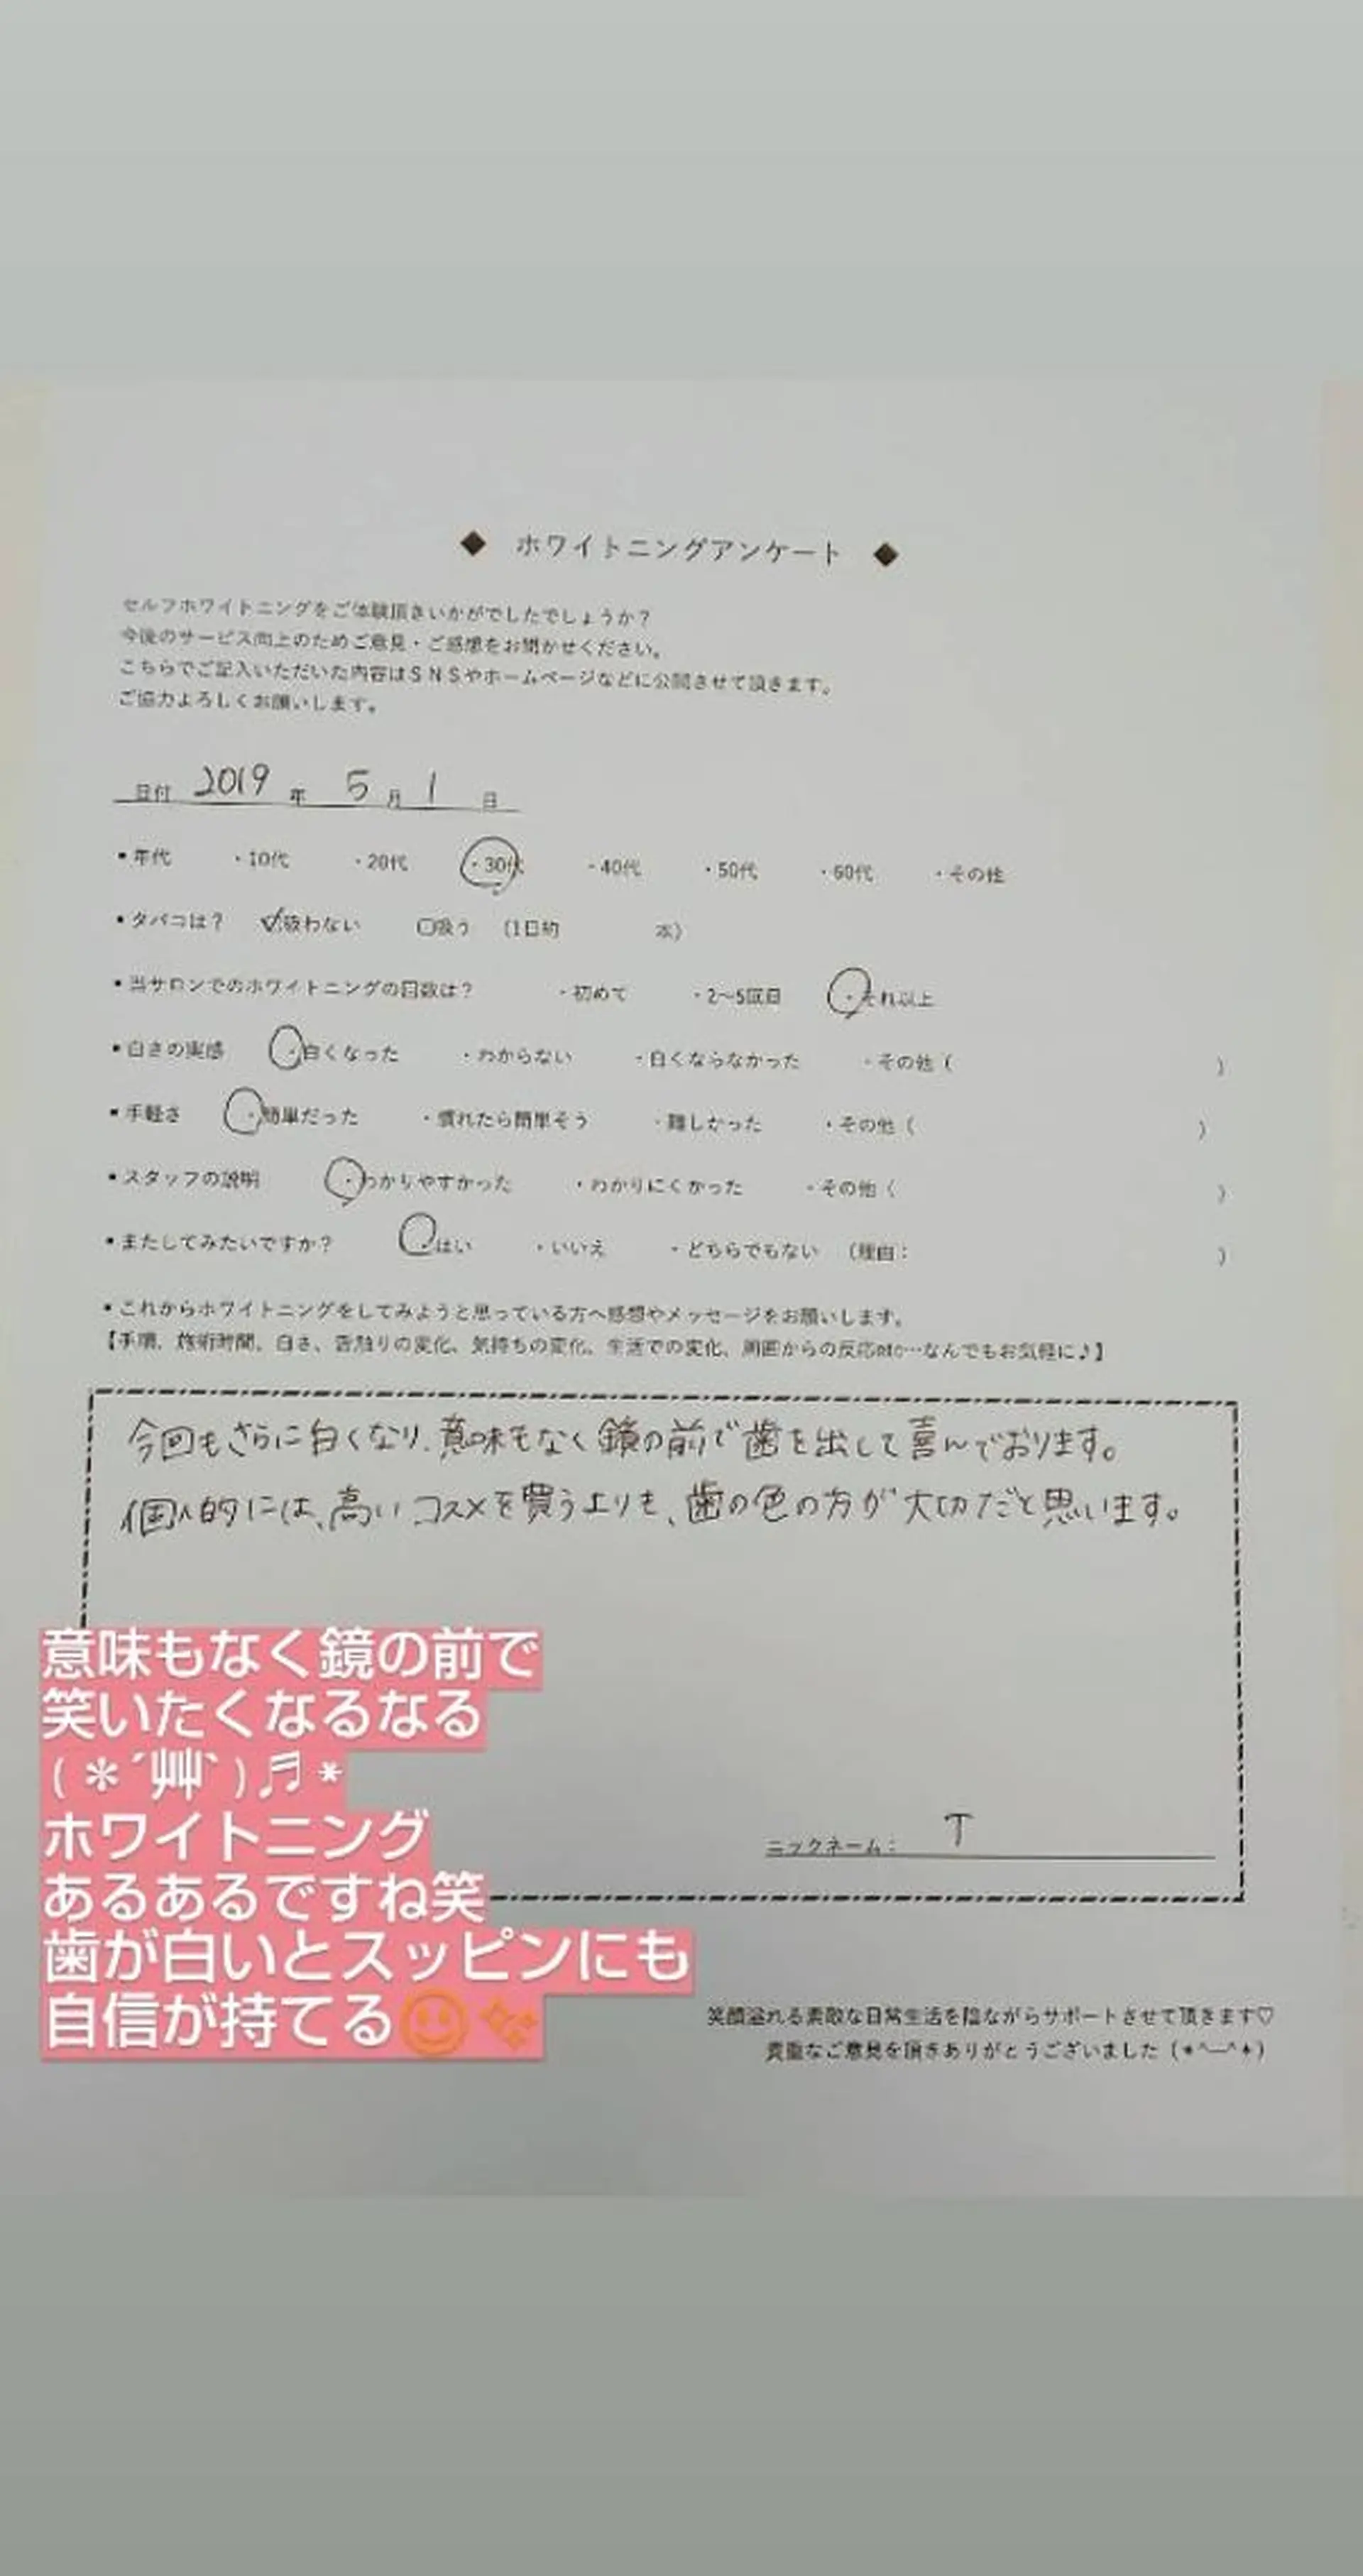 ◆ ホワイトニングアンケート ◆
セルフホワイトニングをご体験頂きいかがでしたでしょうか？
今後のサービス向上のためご意見・ご感想をお聞かせください。
こちらでご記入いただいた内容はＳＮＳやホームページなどに公開させて頂きます。
ご協力よろしくお願いします。
日付 2019 年 5 月 1 日
▪年代 ・10代 ・20代 ・30代 ・40代 ・50代 ・60代 ・その他
▪タバコは？ ☑吸わない □吸う （1日約 本）
▪当サロンでのホワイトニングの回数は？ ・初めて ・2～5回目 ・それ以上
▪白さの実感 ・白くなった ・わからない ・白くならなかった ・その他（ ）
▪手軽さ ・簡単だった ・慣れたら簡単そう ・難しかった ・その他（ ）
▪スタッフの説明 ・わかりやすかった ・わかりにくかった ・その他（ ）
▪またしてみたいですか？ ・はい ・いいえ ・どちらでもない （理由： ）
▪これからホワイトニングをしてみようと思っている方へ感想やメッセージをお願いします。
【手順、施術時間、白さ、舌触りの変化、気持ちの変化、生活での変化、周囲からの反応etc…なんでもお気軽に♪】
今回もさらに白くなり、意味もなく鏡の前で歯を出して喜んでおります。
個人的には、高いコスメを買うよりも、歯の色の方が大切だと思います。
意味もなく鏡の前で
笑いたくなるなる
(＊´艸`)♬*
ホワイトニング
あるあるですね笑
歯が白いとスッピンにも
自信が持てる☺✨
ニックネーム： T
笑顔溢れる素敵な日常生活を陰ながらサポートさせて頂きます♡
貴重なご意見を頂きありがとうございました（*^―^*）